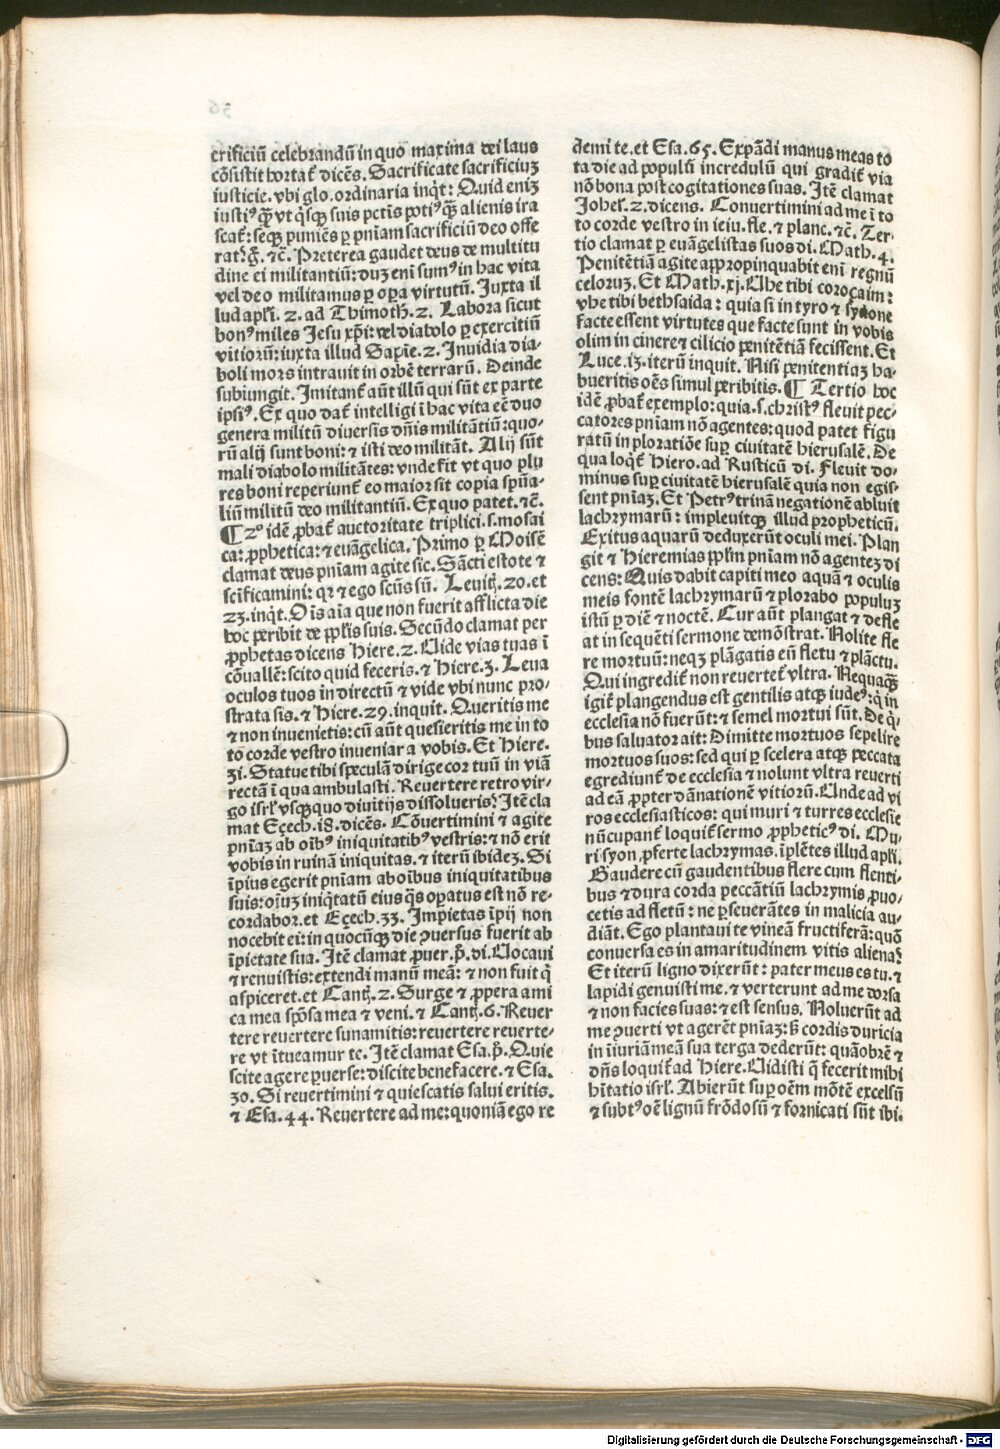 crificiū celebrandū in quo maxima dei laus
cōsistit hortat᷑ dicēs. Sacrificate sacrificiuꝫ
iusticie. vbi glo. ordinaria inq̇t: Quid eniꝫ
iustiꝰ q̄ꝫ vt q̇sqꝫ suis pctīs potiꝰ q̄ꝫ alienis ira
scat᷑: seqꝫ puniēs ꝑ pn̄iam sacrificiū deo offe
rat? g̊. ⁊c̄. Preterea gaudet deus de multitu
dine ei militantiū: duꝫ eni sumꝰ in hac vita
vel deo militamus ꝑ oꝑa virtutū. Juxta il
lud apl̄i. 2. ad Thimoth̄. 2. Labora sicut
bonꝰ miles Jesu xp̄i: vel diabolo ꝑ exercitiū
vitiorū: iuxta illud Sapīe. 2. Inuidia dia-
boli mors intrauit in orbē terrarū. Deinde
subiungit. Imitant᷑ aūt illū qui sūt ex parte
ipsiꝰ. Ex quo dat᷑ intelligi ī hac vita eē duo
genera militū diuersis dn̄is militātiū: quo-
rū alij sunt boni: ⁊ isti deo militāt. Alij sūt
mali diabolo militātes: vnde fit vt quo plu
res boni reperiunt᷑ eo maior sit copia spūa-
liū militū deo militantiū. Ex quo patet. ⁊c̄.
¶ 2° idē ꝓbat᷑ auctoritate triplici. s. mosai
ca: ꝓphetica: ⁊ euāgelica. Primo ꝑ Moisē
clamat deus pn̄iam agite sic. Sācti estote ⁊
scīficamini: qr ⁊ ego scūs sū. Leuit̄. 20. et
23. inq̇t. Oīs aīa que non fuerit afflicta die
hoc peribit de ppl̄is suis. Secūdo clamat per
ꝓphetas dicens Hiere. 2. Vide vias tuas ī
cōuallē: scito quid feceris. ⁊ Hiere. 3. Leua
oculos tuos in directū ⁊ vide vbi nunc pro-
strata sis. ⁊ Hiere. 29. inquit. Queritis me
⁊ non inuenietis: cū aūt quesieritis me in to
to corde vestro inueniar a vobis. Et Hiere.
31. Statue tibi speculā dirige cor tuū in viā
rectā ī qua ambulasti. Reuertere retro vir-
go isrl̄ vsqꝫquo diuitijs dissolueris? Itē cla
mat Eçech. 18. dicēs. Cōuertimini ⁊ agite
pn̄iaꝫ ab oībꝰ iniquitatibꝰ vestris: ⁊ nō erit
vobis in ruinā iniquitas. ⁊ iterū ibideꝫ. Si
īpius egerit pn̄iam ab oībus iniquitatibus
suis: oīuꝫ iniq̇tatū eius q̄s oꝑatus est nō re-
cordabor. et Eçech. 33. Impietas īpij non
nocebit ei: in quocūqꝫ die ꝯuersus fuerit ab
īpietate sua. Itē clamat ꝓuer. p̄. di. Vocaui
⁊ renuistis: extendi manū meā: ⁊ non fuit q̇
aspiceret. et Cant̄. 2. Surge ⁊ ꝓpera ami
ca mea spōsa mea ⁊ veni. ⁊ Cant̄. 6. Reuer
tere reuertere sunamitis: reuertere reuerte-
re vt ītueamur te. Itē clamat Esa. p̄. Quie
scite agere ꝑuerse: discite benefacere. ⁊ Esa.
30. Si reuertimini ⁊ quiescatis salui eritis.
⁊ Esa. 44. Reuertere ad me: quoniā ego re
demi te. et Esa. 65. Expādi manus meas to
ta die ad populū incredulū qui gradit᷑ via
nō bona post cogitationes suas. Itē clamat
Johel̄. 2. dicens. Conuertimini ad me ī to
to corde vestro in ieiu. fle. ⁊ planc. ⁊c̄. Ter-
tio clamat ꝑ euāgelistas suos di. Math. 4.
Penitētiā agite appropinquabit eni regnū
celoruꝫ. Et Math. xj. Uhe tibi coroçaim:
vhe tibi bethsaida: quia si in tyro ⁊ sydone
facte essent virtutes que facte sunt in vobis
olim in cinere ⁊ cilicio penitētiā fecissent. Et
Luce. 13. iterū inquit. Nisi penitentiaꝫ ha-
bueritis oēs simul peribitis. ¶ Tertio hoc
idē ꝓbat᷑ exemplo: quia. s. christꝰ fleuit pec-
catores pniam nō agentes: quod patet figu
ratū in ploratiōe suꝑ ciuitatē hierusalē. De
qua loq̇t᷑ Hiero. ad Rusticū di. Fleuit do-
minus suꝑ ciuitatē hierusalē quia non egis-
sent pn̄iaꝫ. Et Petrꝰ trinā negationē abluit
lachrymarū: impleuitqꝫ illud propheticū.
Exitus aquarū deduxerūt oculi mei. Plan
git ⁊ Hieremias ppl̄m pniam nō agenteꝫ di
cens: Quis dabit capiti meo aquā ⁊ oculis
meis fontē lachrymarū ⁊ plorabo populuꝫ
istū ꝑ diē ⁊ noctē. Cur aūt plangat ⁊ defle
at in sequēti sermone demōstrat. Nolite fle
re mortuū: neqꝫ plāgatis eū fletu ⁊ plāctu.
Qui ingredit᷑ non reuertet᷑ vltra. Nequaq̄ꝫ
igit᷑ plangendus est gentilis atqꝫ iudeꝰ: q̇ in
ecclesia nō fuerūt: ⁊ semel mortui sūt. De q̇-
bus saluator ait: Dimitte mortuos sepelire
mortuos suos: sed qui ꝑ scelera atqꝫ peccata
egrediunt᷑ de ecclesia ⁊ nolunt vltra reuerti
ad eā ꝓpter dānationē vitiorū. Unde ad vi
ros ecclesiasticos: qui muri ⁊ turres ecclesie
nūcupant᷑ loquit᷑ sermo ꝓpheticꝰ di. Mu-
ri syon ꝓferte lachrymas. īplētes illud apl̄i.
Gaudere cū gaudentibus flere cum flenti-
bus ⁊ dura corda peccātiū lachrymis ꝓuo-
cetis ad fletū: ne ꝑseuerātes in malicia au-
diāt. Ego plantaui te vineā fructiferā: quō
conuersa es in amaritudinem vitis aliena?
Et iterū ligno dixerūt: pater meus es tu. ⁊
lapidi genuisti me. ⁊ verterunt ad me dorsa
⁊ non facies suas: ⁊ est sensus. Noluerūt ad
me ꝯuerti vt agerēt pn̄iaꝫ: ẜ cordis duricia
in iiuriā meā sua terga dederūt: quāobrē ⁊
dn̄s loquit᷑ ad Hiere. Vidisti q̄ fecerit mihi
hītatio isrl̄. Abierūt suꝑ oēm mōtē excelsū
⁊ subtꝰ oē lignū frōdosū ⁊ fornicati sūt ibi.
Digitalisierung gefördert durch die Deutsche Forschungsgemeinschaft - DFG